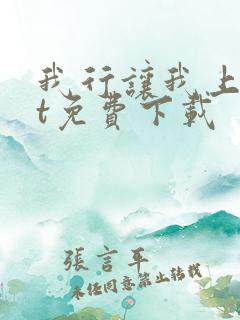 我行讓我上
t免費下載
張言平
未經同意禁止轉載